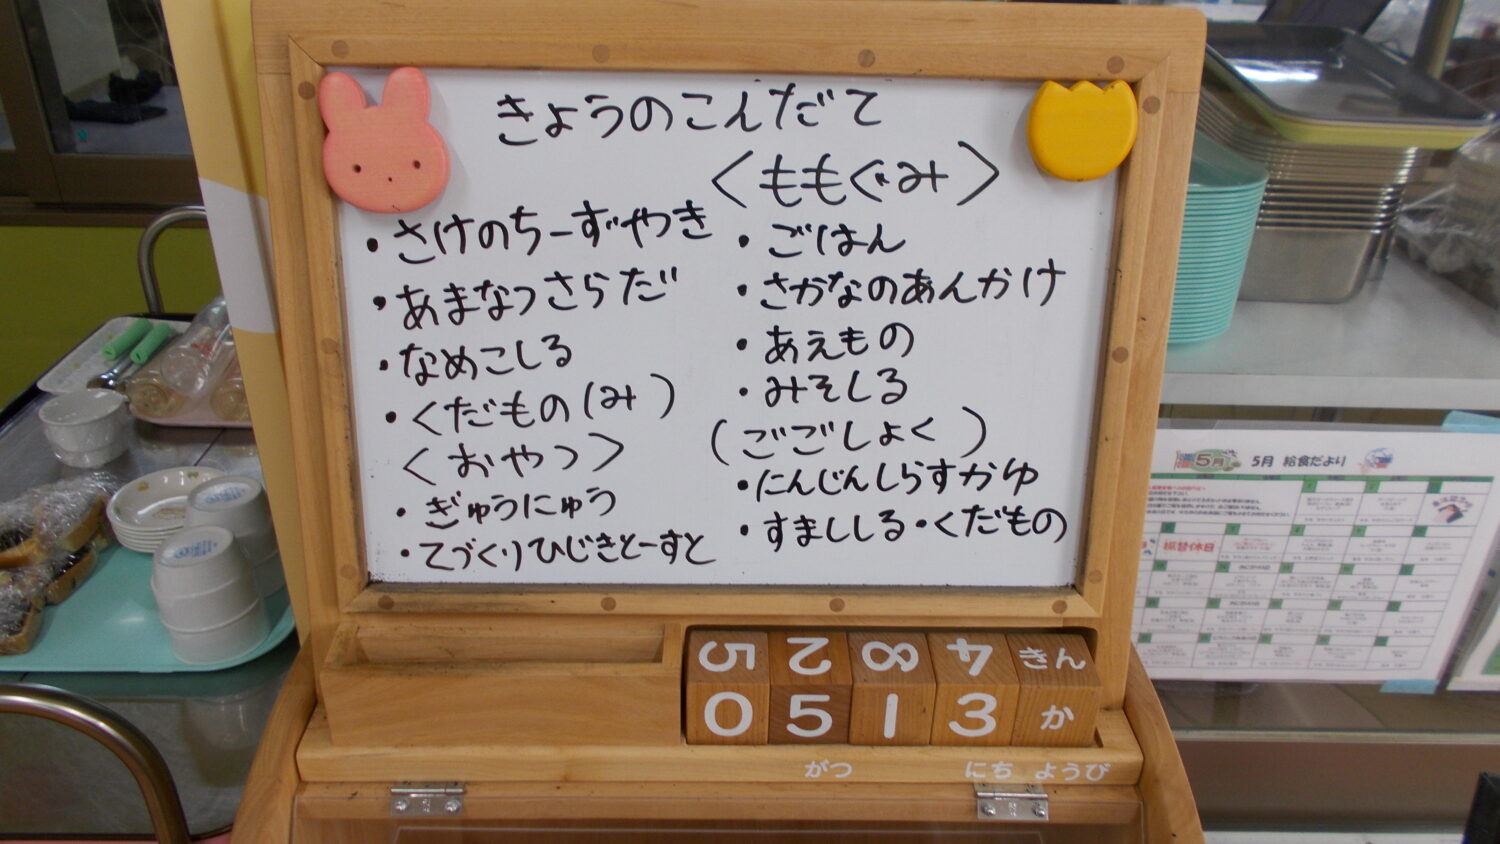 きょうのこんだて
・さけのちーずやき
・あまなつさらだ
・なめこしる
・くだもの(み)
<おやつ>
・ぎゅうにゅう
・てづくりひじきとーすと
<ももぐみ>
・ごはん
・さかなのあんかけ
・あえもの
・みそしる
(ごごしょく)
・にんじんしらすかゆ
・すまししる・くだもの
5 2 8 4 きん
0 5 1 3 か
がつ にち ようび
5月 5月 給食だより
振替休日